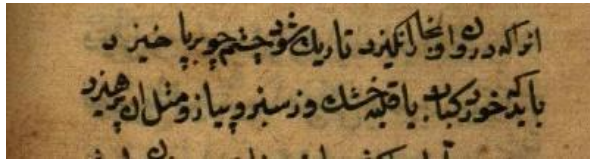 انرا که درون او بخار انگیزد تاریک شود چشم چو بر پا خیزد
باید که خورد کباب یا قلیه خشک وز سیر و پیاز و مثل ان پرهیزد